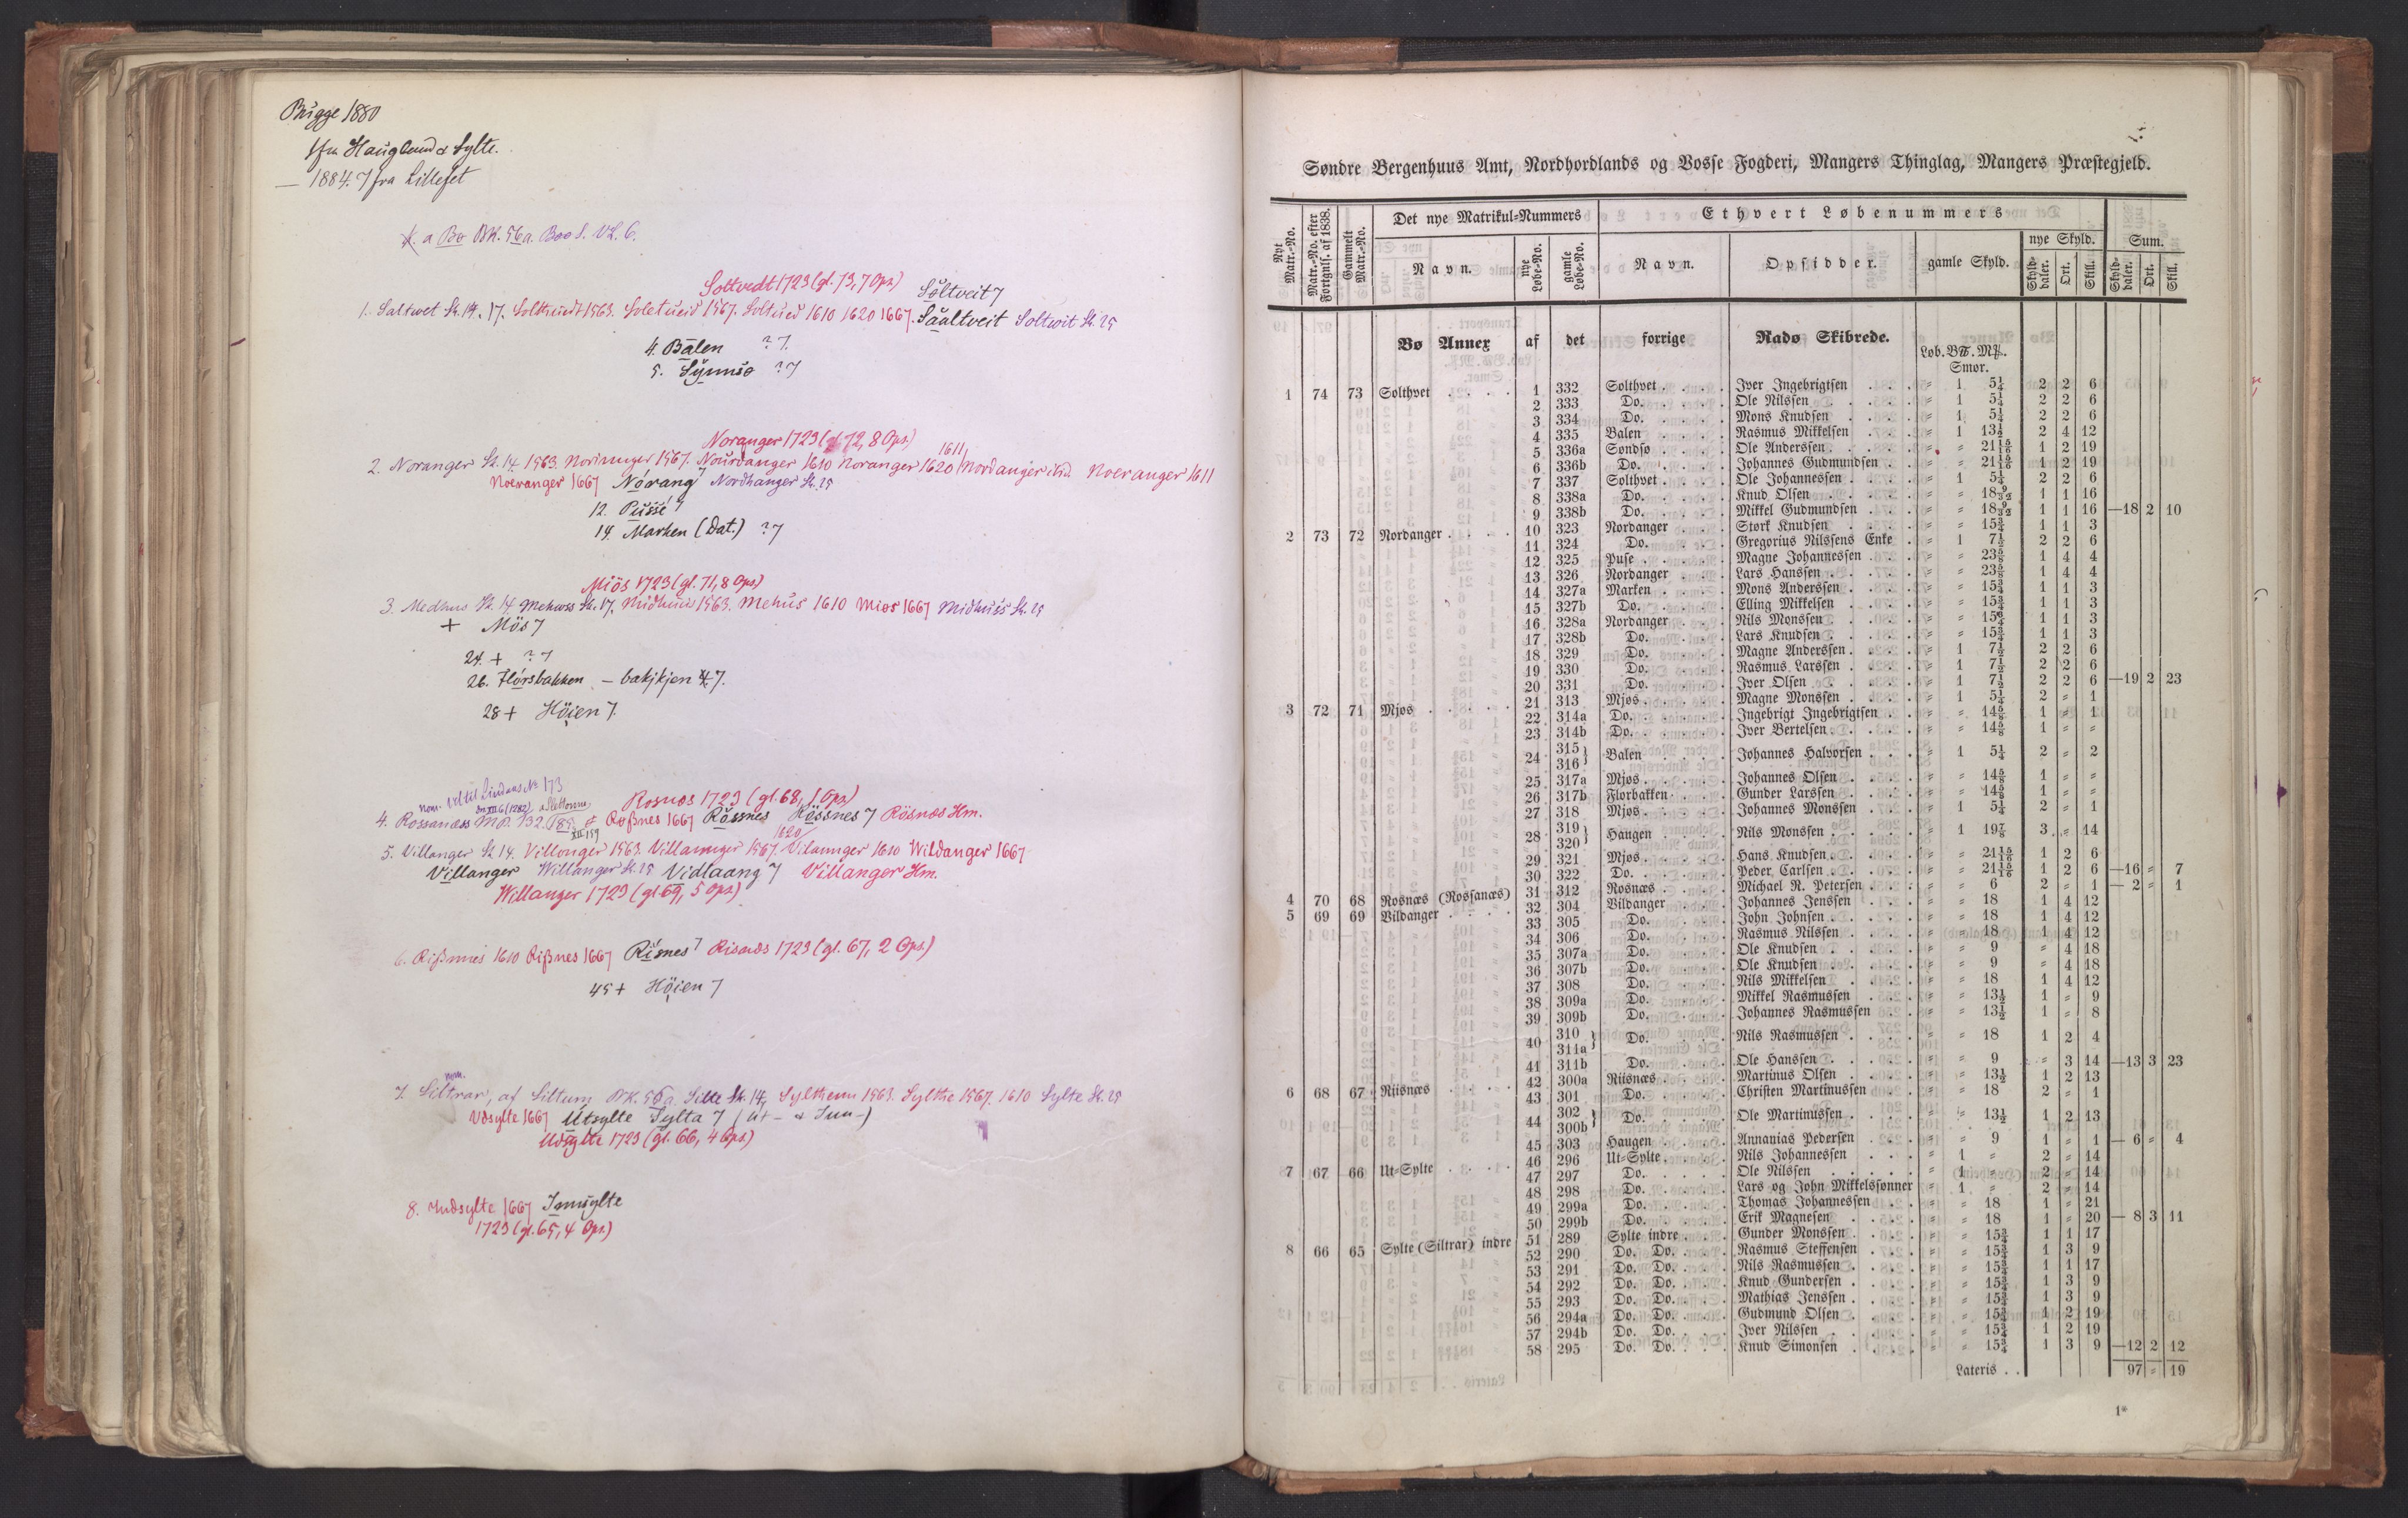 Bugge 1880
fra Haugland & Sylte.
— 1884. 7 fra Lillefet
a Bø BK. 56a. Boo S. VL. 6.
Soltvedt 1723 (gl. 73, 7 Ops.)
Söltveit 7
1. Saltwet St. 14. 17. Solthuedt 1563. Soletueid 1567. Soltued 1610 1620 1667. Såaltveit Soltwit St. 25
4. Bālen ? 7.
5. Synnsø ? 7
Noranger 1723 (gl. 72, 8 Ops.)
1611,
2. Noranger St. 14 1563. Noranger 1567. Nourdanger 1610 Noranger 1620 Nordanger Noeranger 1611
Noeranger 1667 Nórang 7 Nordhanger St. 25
12. Pusse 7
14. Marken (Dat.) ? 7
Miös 1723 (gl. 71, 8 Ops.)
3. Medhus St. 14 Mehuss St. 17. Midhuus 1563. Mehus 1610 Mios 1667 Midhuss St. 25
+ Mös 7
24. + ? 7
26. Flórsbakken – bakjkjen 7.
28 + Höien 7.
Rosnæs 1723 (gl. 68, 1 Ops.)
4. Rossanæss M.P. 132. Roßnes 1667 Rössnes Rössnes 7 Rösnæs Hm.
1620
5. Villanger St. 14. Villonger 1563. Villannger 1567. Vilannger 1610 Wildanger 1667
Villanger Willanger St. 25 Vidlaang 7 Villanger Hm.
Willanger 1723 (gl 69, 5 Ops.)
6. Rißnnes 1610 Rißnes 1667 Risnes 7 Risnæs 1723 (gl. 67, 2 Ops.)
45 + Höien 7
nom.
7. Siltrar, af Siltum BK. 56a. Silte St. 14, Sylthenn 1563. Sylthe 1567. 1610 Sylte St. 25
Vdsylte 1667 Utsylte Sylta 7 (Ut- & Inn-)
Udsylte 1723 (gl. 66, 4 Ops.)
8. Indsylte 1667 Innsylte
1723 (gl. 65, 4 Ops.)
Søndre Bergenhuus Amt, Nordhordlands og Vosse Fogderi, Mangers Thinglag, Mangers Præstegjeld.
Nyt Matr.-No. Matr.-No. efter Fortgnls. af 1838. Gammelt Matr.-No. Det nye Matrikul-Nummers Ethvert Løbenummers
Navn. nye Løbe-No. gamle Løbe-No. Navn. Opsidder. gamle Skyld. nye Skyld. Sum.
Skylddaler. Ort. Skill. Skylddaler. Ort. Skill.
Bø Annex af det forrige Radø Skibrede. Løb. B℔. M℔.
Smør.
1 74 73 Solthvet . . . . 1 332 Solthvet . . . . Iver Ingebrigtsen . . . = 1 5¼ 2 2 6
2 333 Do. . . . . Ole Nilssen . . . . = 1 5¼ 2 2 6
3 334 Do. . . . . Mons Knudsen . . . . = 1 5¼ 2 2 6
4 335 Balen . . . . Rasmus Mikkelsen . . . = 1 13½ 2 4 12
5 336a Søndsø . . . . Ole Anderssen . . . . = = 21 15/16 1 2 19
6 336b Do. . . . . Johannes Gudmundsen . . = = 21 15/16 1 2 19
7 337 Solthvet . . . . Ole Johannessen . . . = 1 5¼ 2 2 6
8 338a Do. . . . . Knud Olsen . . . . = = 18 9/32 1 1 16
9 338b Do. . . . . Mikkel Gudmundsen . . . = = 18 9/32 1 1 16 —18 2 10
2 73 72 Nordanger . . . . 10 323 Nordanger . . . Størk Knudsen . . . . = = 15¾ 1 1 3
11 324 Do. . . . . Gregorius Nilssens Enke . = 1 7½ 2 2 6
12 325 Puse . . . . Magne Johannessen . . . = = 23⅝ 1 4 4
13 326 Nordanger . . . Lars Hanssen . . . . = = 23⅝ 1 4 4
14 327a Marken . . . . Mons Anderssen . . . . = = 15¾ 1 1 3
15 327b Do. . . . . Elling Mikkelsen . . . = = 15¾ 1 1 3
16 328a Nordanger . . . Nils Monssen . . . . = = 15¾ 1 1 3
17 328b Do. . . . . Lars Knudsen . . . . = = 15¾ 1 1 3
18 329 Do. . . . . Magne Anderssen . . . = 1 7½ 2 2 6
19 330 Do. . . . . Rasmus Larssen . . . . = 1 7½ 2 2 6
20 331 Do. . . . . Iver Olsen . . . . = 1 7½ 2 2 6 —19 2 23
3 72 71 Mjøs . . . . 21 313 Mjøs . . . . Magne Monssen . . . . = 1 5¼ 2 = 1
22 314a Do. . . . . Ingebrigt Ingebrigtsen . . = = 14⅝ 1 = 1
23 314b Do. . . . . Iver Bertelsen . . . . = = 14⅝ 1 = =
24 315 316 } Balen . . . . Johannes Halvorsen . . . = 1 5¼ 2 = 2
25 317a Mjøs . . . . Johannes Olsen . . . . = = 14⅝ 1 = =
26 317b Florbakken . . . Gunder Larssen . . . . = = 14⅝ 1 = =
27 318 Mjøs . . . . Johannes Monssen . . . = 1 5¼ 2 = 1
28 319 320 } Haugen . . . . Nils Monssen . . . . = 1 19⅞ 3 = 14
29 321 Mjøs . . . . Hans Knudsen . . . . = = 21 15/16 1 2 6
30 322 Do. . . . . Peder Carlsen . . . . = = 21 15/16 1 2 6 —16 = 7
4 70 68 Rosnæs (Rossanæs) 31 312 Rosnæs . . . . Michael R. Petersen . . . = = 6 2 = 1 — 2 = 1
5 69 69 Vildanger . . . . 32 304 Vildanger . . . Johannes Jenssen . . . = = 18 1 4 12
33 305 Do. . . . . John Johnsen . . . . = = 18 1 4 12
34 306 Do. . . . . Rasmus Nilssen . . . . = = 18 1 4 12
35 307a Do. . . . . Ole Knudsen . . . . = = 9 = 4 18
36 307b Do. . . . . Ole Knudsen . . . . = = 9 = 4 18
37 308 Do. . . . . Nils Mikkelsen . . . . = = 18 1 4 12
38 309a Do. . . . . Mikkel Rasmussen . . . = = 13½ 1 = 9
39 309b Do. . . . . Johannes Rasmussen . . = = 13½ 1 = 8
40 310 311a } Do. . . . . Nils Rasmussen . . . . = = 18 1 2 4
41 311b Do. . . . . Ole Hanssen . . . . = = 9 = 3 14 —13 3 23
6 68 67 Riisnæs . . . . 42 300a Riisnæs . . . . Martinus Olsen . . . . = = 13½ 1 2 13
43 301 Do. . . . . Christen Martinussen . . = = 18 2 = 1
44 302 300b } Do. . . . . Ole Martinussen . . . . = = 13½ 1 2 13
45 303 Haugen . . . . Annanias Pedersen . . . = = 9 1 = 1 — 6 = 4
7 67 66 Ut-Sylte . . . . 46 296 Ut-Sylte . . . . Nils Johannessen . . . = 1 = 2 = 14
47 297 Do. . . . . Ole Nilssen . . . . = 1 = 2 = 14
48 298 Do. . . . . Lars og John Mikkelssønner = 1 = 2 = 14
49 299a Do. . . . . Thomas Johannessen . . = = 18 1 = 21
50 299b Do. . . . . Erik Magnesen . . . . = = 18 1 = 20 — 8 3 11
8 66 65 Sylte (Siltrar) indre 51 289 Sylte indre . . . Gunder Monssen . . . . = = 15¾ 1 1 17
52 290 Do. Do. . . . Rasmus Steffensen . . . = = 15¾ 1 3 9
53 291 Do. Do. . . . Nils Rasmussen . . . . = = 15¾ 1 1 17
54 292 Do. Do. . . . Knud Gundersen . . . . = = 15¾ 1 3 9
55 293 Do. Do. . . . Mathias Jenssen . . . . = = 15¾ 1 3 9
56 294a Do. Do. . . . Gudmund Olsen . . . . = = 15¾ 1 2 19
57 294b Do. Do. . . . Iver Nilssen . . . . = = 15¾ 1 2 19
58 295 Do. Do. . . . Knud Simonsen . . . . = = 15¾ 1 3 9 —12 2 12
Lateris . . 97 = 19
1*